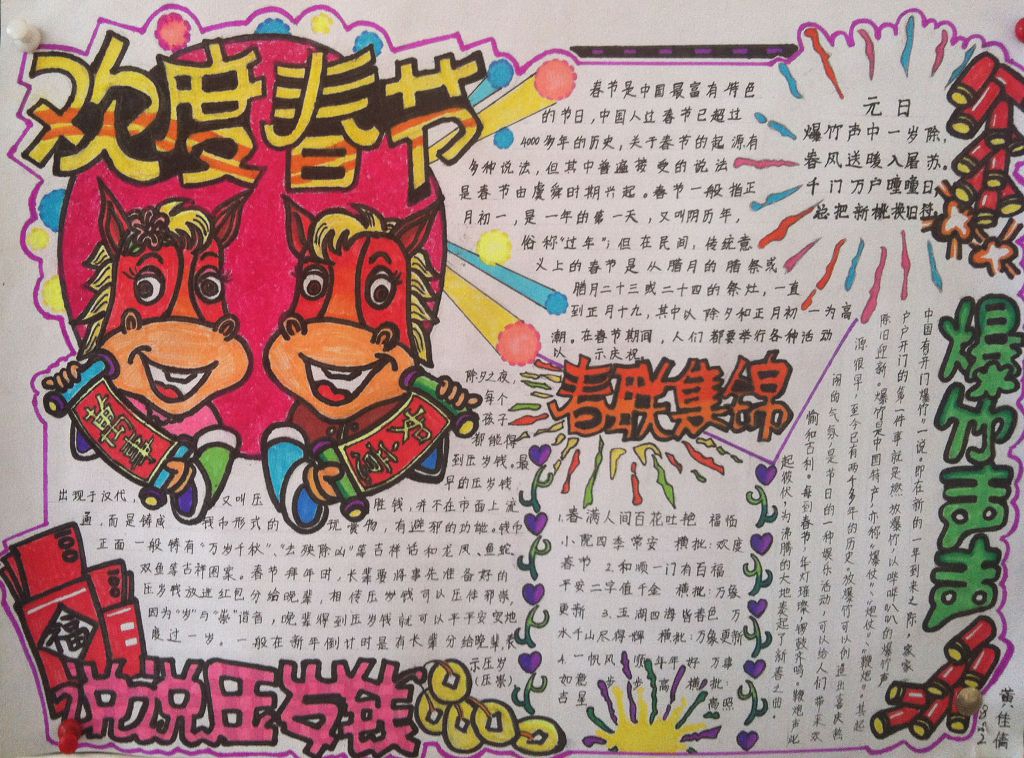 欢度春节
春节是中国最富有特色
的节日,中国人过春节已超过
4000多年的历史,关于春节的起源有
多种说法,但其中普遍接受的说法
是春节由虞舜时期兴起。春节一般指正
月初一,是一年的第一天,又叫阴历年,
俗称“过年”;但在民间,传统意
义上的春节是从腊月的腊祭或
腊月二十三或二十四的祭灶,一直
到正月十九,其中以除夕和正月初一为高
潮。在春节期间,人们都要举行各种活动
以示庆祝
元日
爆竹声中一岁除,
春风送暖入屠苏。
千门万户曈曈日,
总把新桃换旧符。
爆竹声声
中国有“开门爆竹”一说。即在新的一年到来之际,家家
户户开门的第一件事就是燃放爆竹,以哔哔叭叭的爆竹声
除旧迎新。爆竹是中国特产,亦称“爆仗”、“炮仗”、“鞭炮”。其起
源很早,至今已有两千多年的历史。放爆竹可以创造出喜庆热
闹的气氛,是节日的一种娱乐活动,可以给人们带来欢
愉和吉利。
春联集锦
1.春满人间百花吐艳 福临
小院四季常安 横批:欢度
春节 2.和顺一门有百福
平安二字值千金 横批:万象
更新 3.五湖四海皆春色 万
水千山尽得辉 横批:万象更新
4.一帆风顺年年好 万事
如意步步高 横批:
吉星高照
除夕之夜,
每个
孩子
都能得
到压岁钱。最
早的压岁钱
出现于汉代,又叫压胜钱,并不在市面上流
通,而是铸成钱币形式的玩赏物,有避邪的功能。钱币
正面一般铸有“万岁千秋”、“去殃除凶”等吉祥话和龙凤、龟蛇、
双鱼等吉祥图案。春节拜年时,长辈要将事先准备好的
压岁钱放进红包分给晚辈,相传压岁钱可以压住邪祟,
因为“岁”与“祟”谐音,晚辈得到压岁钱就可以平平安安地
度过一岁。一般在新年倒计时是有长辈分给晚辈,表
示压岁
(压祟)
福
说说压岁钱
黄佳僑